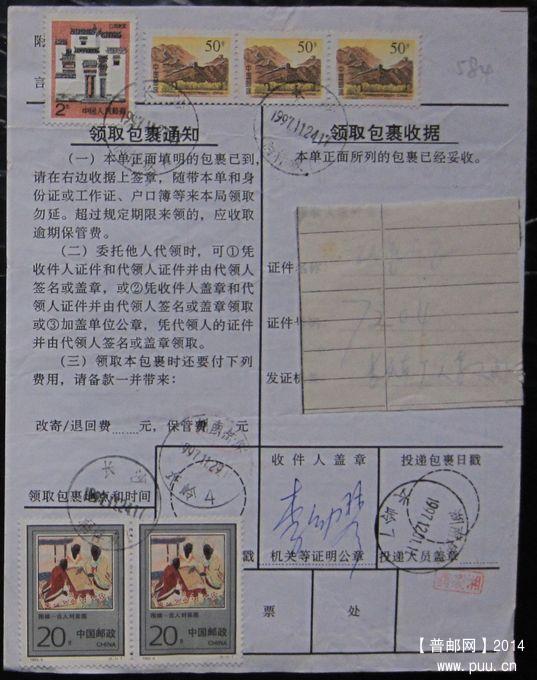 附
言
江西民居
2元
中国人民邮政
50分
中国邮政
50分
中国邮政
50分
中国邮政
584
长沙
1997.11.24.17
长沙
1997.11.24.17
领取包裹通知
(一)本单正面填明的包裹已到,
请在右边收据上签章,随带本单和身
份证或工作证、户口簿等来本局领取
勿延。超过规定期限来领的,应收取
逾期保管费。
(二)委托他人代领时,可①凭
收件人证件和代领人证件并由代领人
签名或盖章,或②凭收件人盖章和代
领人证件并由代领人签名或盖章领取
或③加盖单位公章,凭代领人的证件
并由代领人签名或盖章领取。
(三)领取本包裹时还要付下列
费用,请备款一并带来:
改寄/退回费……元,保管费……元
领取包裹地点和时间
领取包裹收据
本单正面所列的包裹已经妥收。
证件名称
证件号
7204
发证机
收件人盖章
投递包裹日戳
戳
机关等证明公章
投递人员盖章
票处
长沙
1997.11.24.17
1997.11.29
4
1997.12.01
围棋—古人对弈图
20分
中国邮政
CHINA
围棋—古人对弈图
20分
中国邮政
CHINA
【普邮网】2014
www.puu.cn